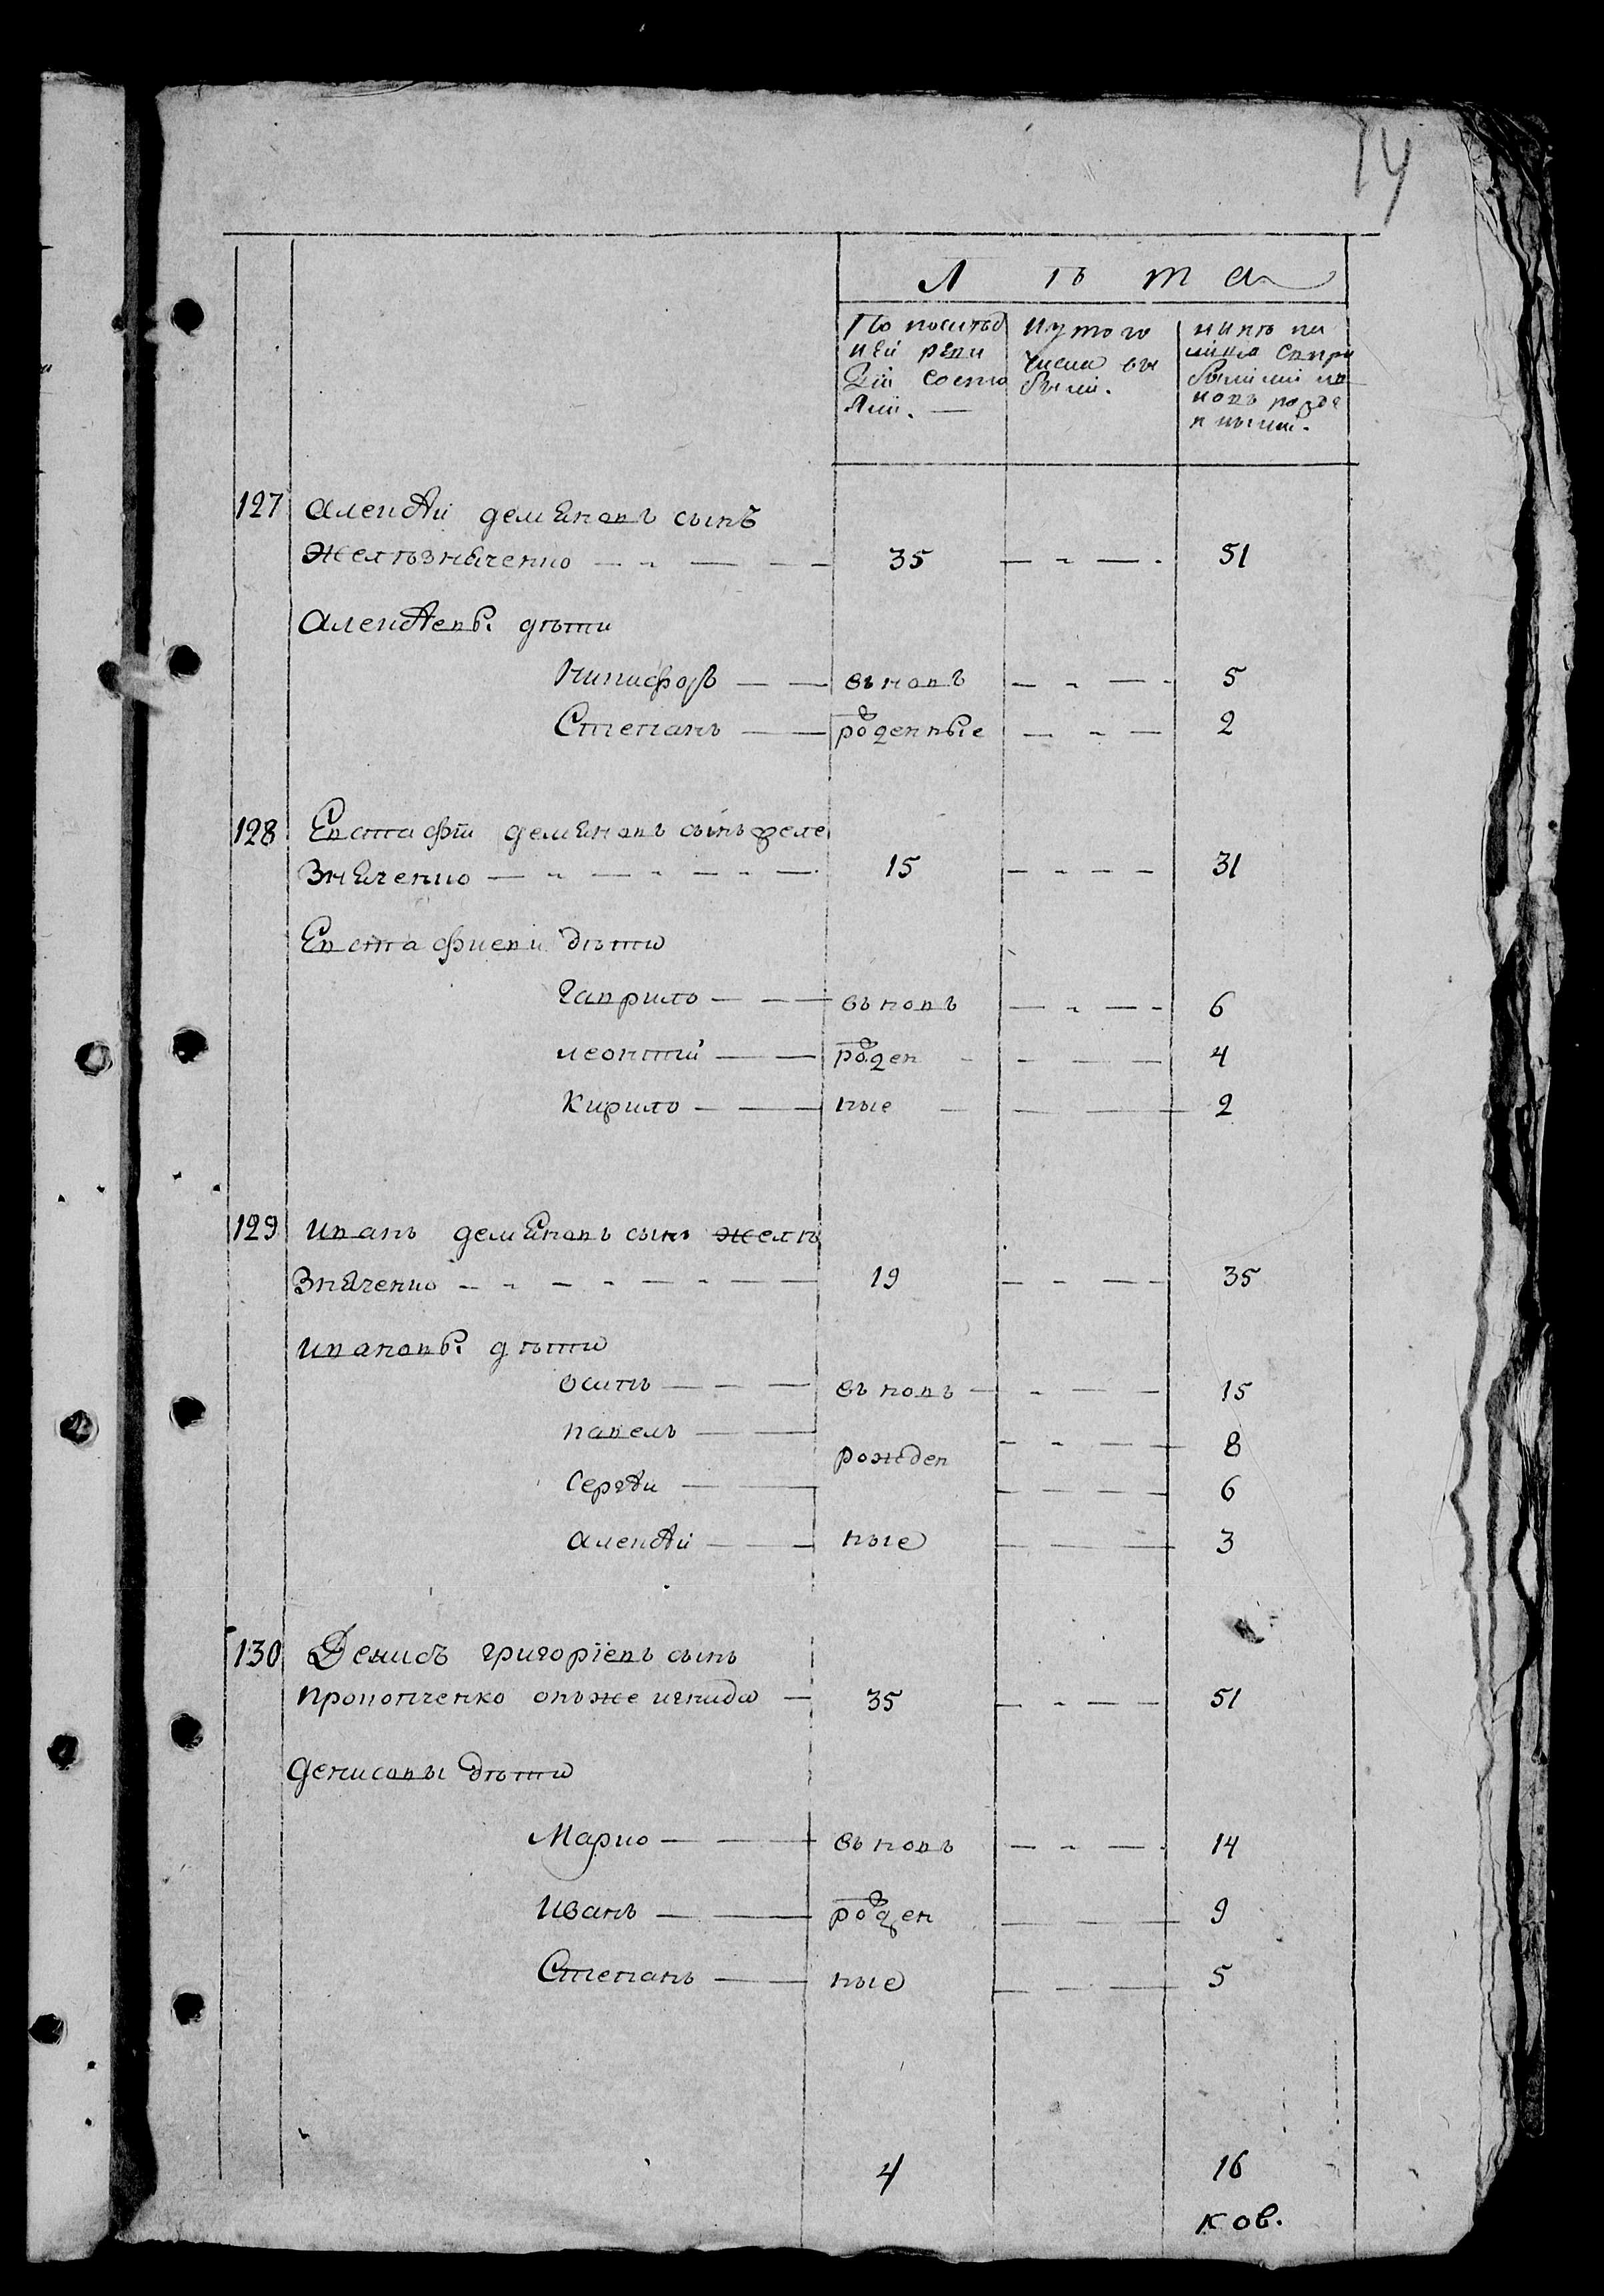 14
Лѣта
По послѣд
ней реви
зіи состо
яли.
ис того
числа вы
были.
нынѣ на
лицо с при
былыми и в
новь рожде
нными.
127 Алексѣй деміяновъ сынъ
Желѣзняченко 35 51
Алексѣевы дѣти
Никифоръ вновь 5
Степанъ рожденные 2
128 Евстафій деміяновъ сынъ желе
зняченко 15 31
Евстафиеви дѣти
Гаврило вновь 6
леонтий рожден 4
Кирило ные 2
129 иванъ деміяновъ сынъ желѣ
зняченко 19 35
ивановы дѣти
осипъ вновь 15
павелъ 8
рожден
Сергѣи 6
алексѣй ные 3
130 Денисъ григоріевъ сынъ
Прокопченко онъже 35 51
денисовы дѣти
Марко вновь 14
Иванъ рожден 9
Степанъ ные 5
4 16
ков.